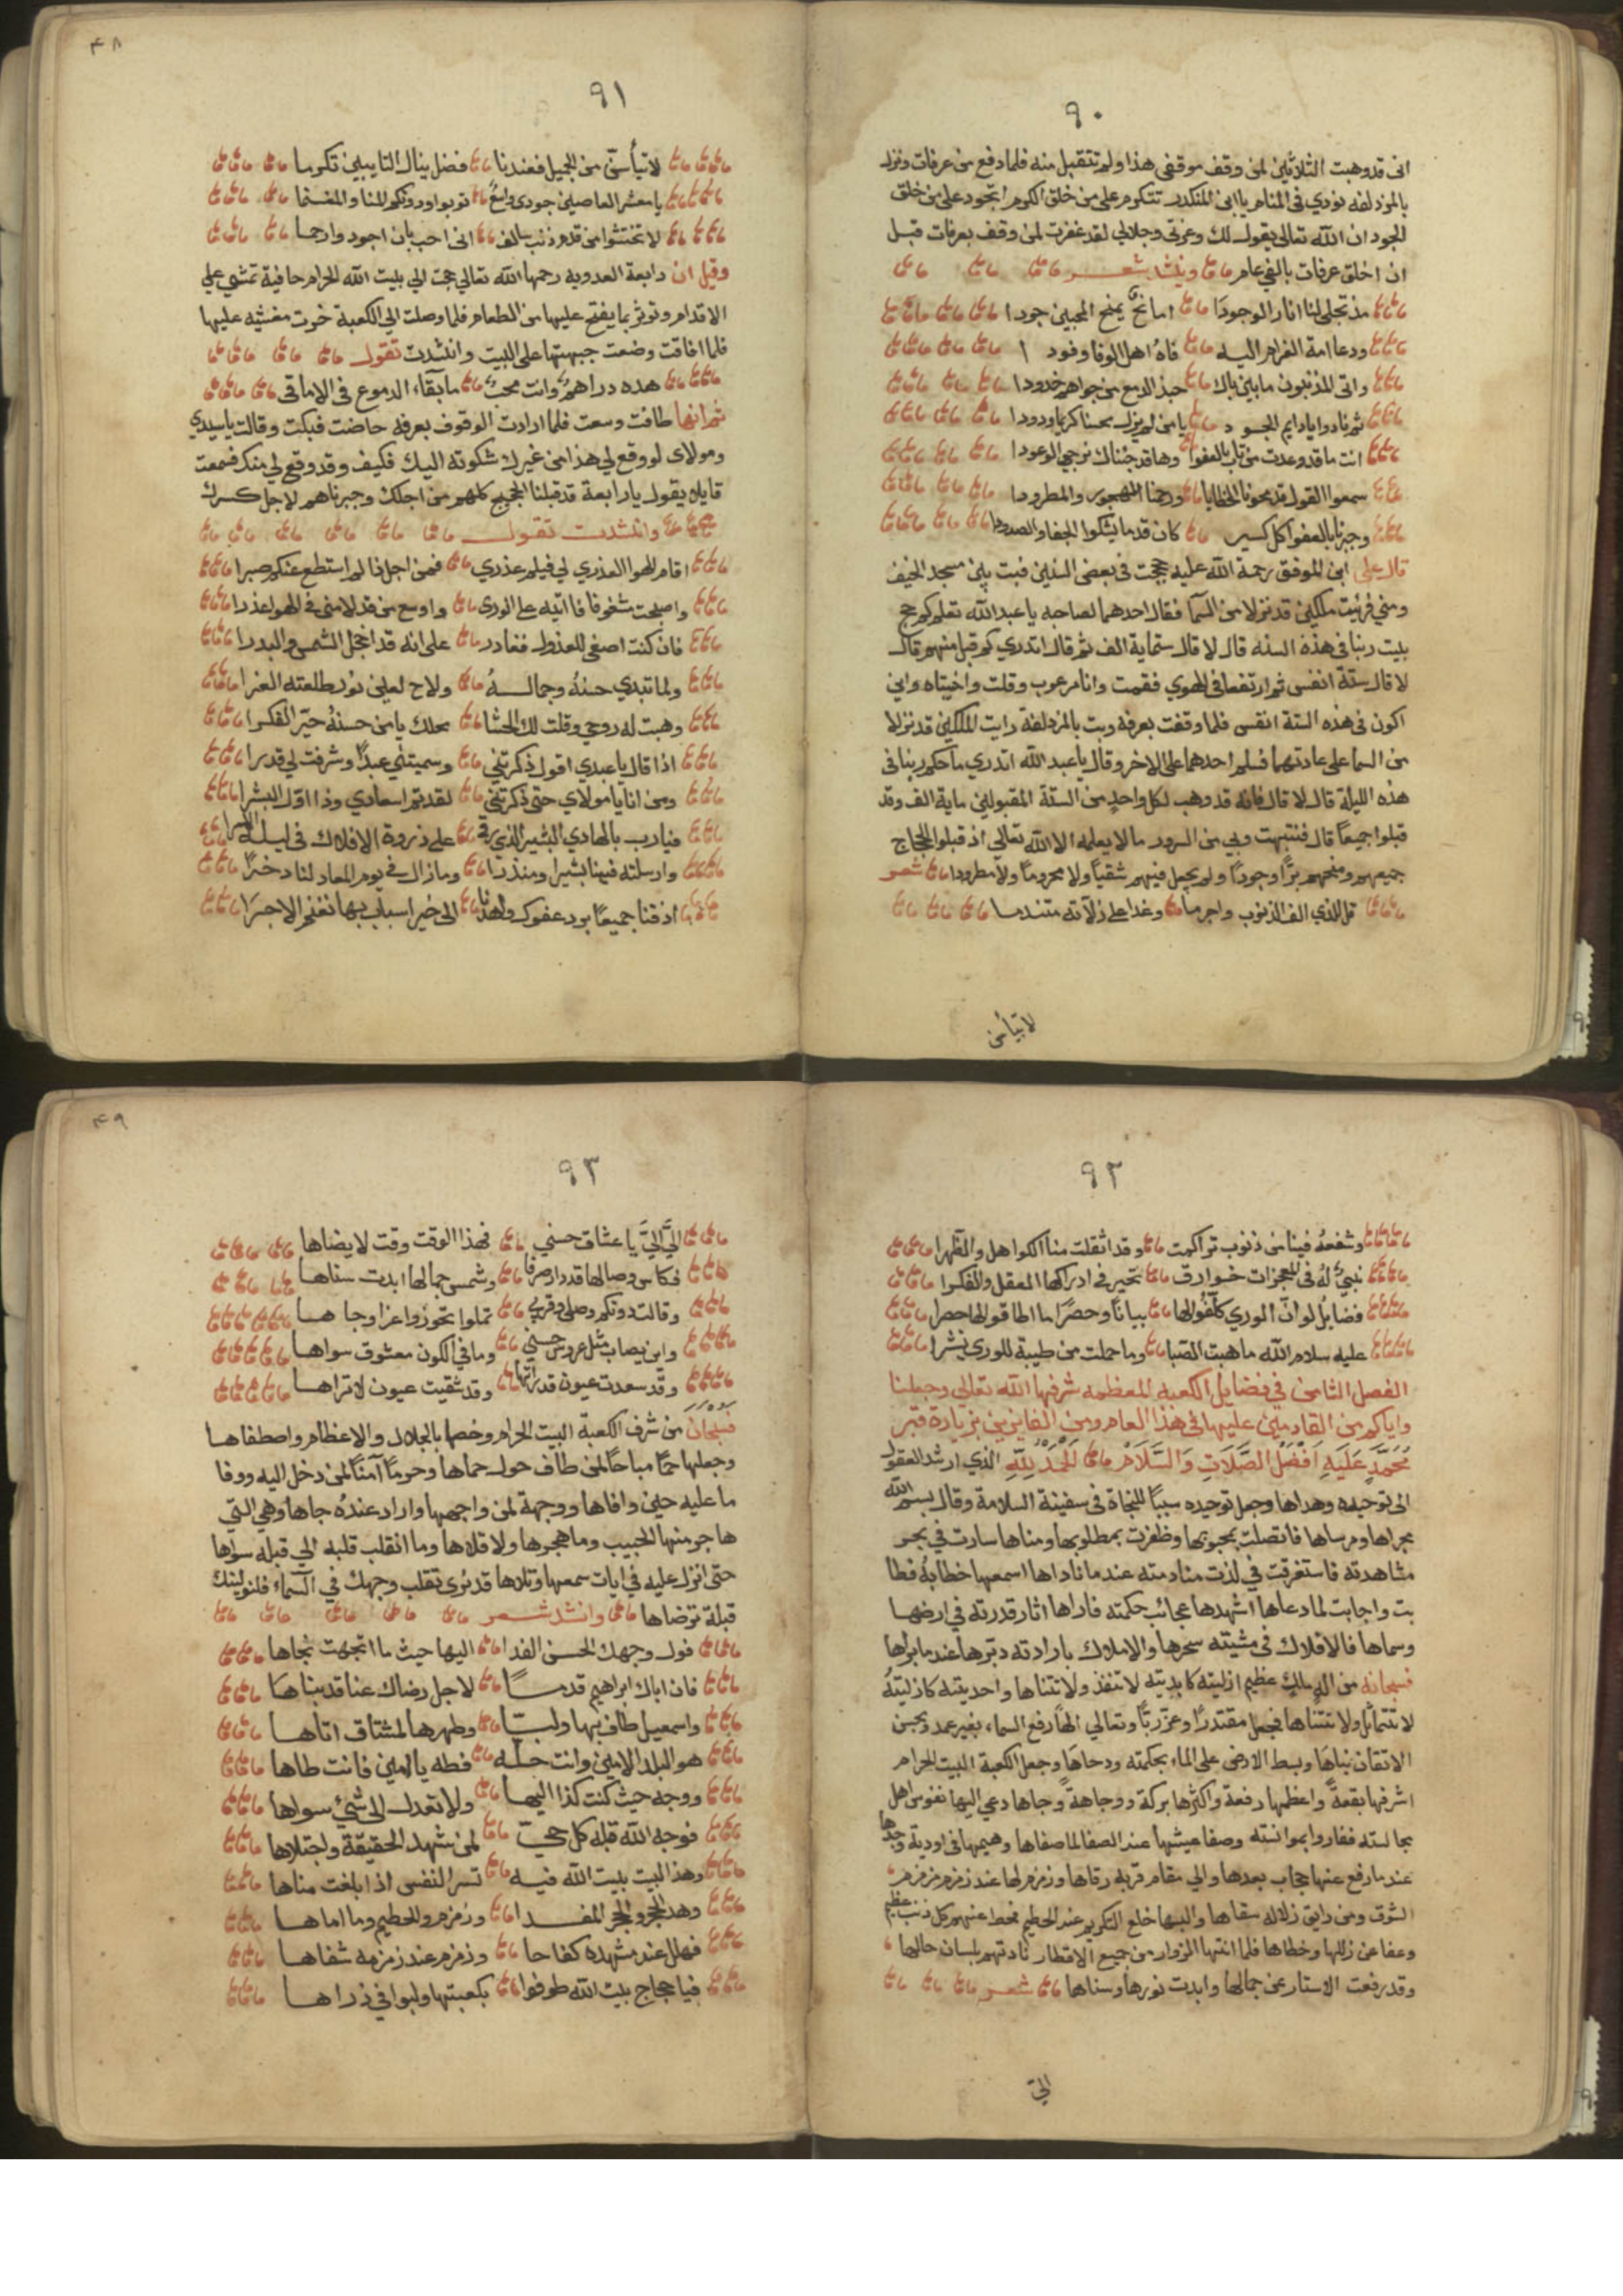 ٩٠
انى قد وهبت الثلاثين لمن وقف موقفى هذا ولم تتقبل منه فلما دفع من عرفات ونزل
بالمزدلفه نودي فى المنام يا ابن المنكدر تتكرم على من خلق الكرم اتجود على من خلق
الجود ان الله تعالى يقول لك وعزتى وجلالى لقد غفرت لمن وقف بعرفات قبل
ان اخلق عرفات بالفي عام وينشد شعر
مذ تجلى لنا انار الوجودا اما نح يمنح المحبين جودا
ودعا امة الغرام اليه فاه اهل الوفا وفودا
واتى المذنبون ما بين باك حبذ الدمع من جواهم خدودا
ثم نادوا يا دايم الجود يا من لم يزل محسنا كريما ودودا
انت ما قد وعدت من تاب بالعفو وها قد جئناك نرجى الوعودا
سمعوا القول قد محونا الخطايا ورحمنا المهجور والمطرودا
وجبرنا بالعفو كل كسير كان قدما يشكوا الجفا والصدودا
قال على ابن الموفق رحمة الله عليه حججت فى بعض السنين فبت بين مسجد الخيف
ومنى فرئيت ملكين قد نزلا من السما فقال احدهما لصاحبه يا عبد الله تعلم كم حج
بيت ربنا فى هذه السنه قال لا قال ستماية الف ثم قال اتدري كم قبل منهم قال
لا قال ستة انفس ثم ارتفعا فى الهوي فقمت وانا مرعوب وقلت واخيبتاه واين
اكون فى هذه الستة انفس فلما وقفت بعرفه وبت بالمزدلفة رايت الملكين قد نزلا
من السما على عادتهما فسلم احدهما على الاخر وقال يا عبد الله اتدري ما حكم ربنا فى
هذه الليلة قال لا قال فانه قد وهب لكل واحد من الستة المقبولين ماية الف وقد
قبلوا جميعا قال فنتبهت وبي من السرور ما لا يعلمه الا الله تعالى اذ قبلوا الحجاج
جميعهم ومنحهم برًا وجودًا ولم يجعل فيهم شقيًا ولا محرومًا ولا مطرودا شعر
قل للذي الف الذنوب واجرما وغدا على زلاته متندما
لا تيأسن
٤٨
٩١
لا تيأسنّ من الجميل فعندنا فضل ينال التايبين تكرما
يا معشر العاصين جودى واسع توبوا ودونكم المنا والمغنما
لا تختشوا من قدم ذنب سالف انى احب بان اجود وارحما
وقيل ان رابعة العدويه رحمها الله تعالى حجت الي بيت الله الحرام حافية تمشي علي
الاقدام وتوثر بما يفتح عليها من الطعام فلما وصلت الي الكعبة خرت مغشيه عليها
فلما افاقت وضعت جبهتها على البيت وانشدت تقول
هذه دراهم وانت محب ما بقاء الدموع فى الاماقى
ثم انها طافت وسعت فلما ارادت الوقوف بعرفه حاضت فبكت وقالت يا سيدي
ومولاى لو وقع لي هذا من غيرك شكوته اليك فكيف وقد وقع لي منك فسمعت
قايلا يقول يا رابعة قد قبلنا الحجيج كلهم من اجلك وجبرناهم لاجل كسرك
وانشدت تقول
اقام الهوا العذري لي فيلم عذري فمن اجل ذا لم استطع عنكم صبرا
واصبحت مشغوفا فاتيه على الورى واوسع من قد لامنى فى الهوا عذرا
فان كنت اصغى للعذول فغادر على انه قد اخجل الشمس والبدرا
ولما تبدي حسنه وجماله ولاح لعينى نور طلعته الغرا
وهبت له روحي وقلت لك الحشا محلك يا من حسنه حير الفكرا
اذا قال يا عبدي اقول ذكرتني وسميتني عبدًا وشرفت لي قدرا
ومن انا يا مولاي حتى ذكرتني لقد تم اسعادي وذا اول البشرا
فيا رب بالهادي البشير الذي رقى على ذروة الافلاك فى ليلة الاسرا
وارسلته فينا بشيرا ومنذرا وما زال في يوم المعاد لنا دخرًا
اذقنا جميعًا برد عفوك واهدنا الى خير اسباب بها نغنم الاجرا
٩٢
وشفعه فينا من ذنوب تراكمت وقد اثقلت منا الكواهل والظهرا
نبيّ له فى المعجزات خوارق تحير فى ادراكها العقل والفكرا
فضايل لو ان الورى كلفوا لها بيانًا وحصرًا ما اطاقوا لها حصرا
عليه سلام الله ما هبت الصبا وما حملت من طيبة للورى نشرا
الفصل الثامن في فضايل الكعبه المعظمه شرفها الله تعالى وجعلنا
واياكم من القادمين عليها فى هذا العام ومن الفايزين بزيارة قبر
مُحَمَّدٍ عَلَيْهِ اَفْضَلُ الصَّلَاتِ وَالسَّلَامْ اَلْحَمْدُ لِلّهِ الذي ارشد العقول
الى توحيده وهداها وجعل توحيده سببًا للنجاة فى سفينة السلامة وقال بسم الله
مجراها ومرساها فاتصلت بمحبوبها وظفرت بمطلوبها ومناها سارت في بحر
مشاهدته فاستغرقت في لذت منادمته عند ما ناداها اسمعها خطابه فطا
بت واجابت لما دعاها اشهدها عجائب حكمته فاراها اثار قدرته في ارضها
وسماها فالافلاك فى مشيته سخرها والاملاك بارادته دبرها عند ما براها
فسبحانه من اله ملك عظيم ازليته كابديته لا تنفذ ولا تتناها واحديته كازليته
لا تتماثل ولا تتناها فجعل مقتدرًا وعز ربًا وتعالى الهًا رفع السماء بغير عمد وبحسن
الاتقان بناها وبسط الارض على الماء بحكمته ودحاها وجعل الكعبة البيت الحرام
اشرفها بقعةً واعظمها رفعة واكثرها بركة ووجاهةً وجاها دعى اليها نفوس اهل
مجالسته ففازوا بموانسته وصفا عيشها عند الصفا لما صفاها وهيمها فى اودية وجدها
عند ما رفع عنها حجاب بعدها والى مقام قربه رقاها وزمزم لها عند زمزم مزمزم
الشوق ومن رايق زلاله سقاها والبسها خلع التكريم عند الحطيم فحط عنهم كل ذنب عظيم
وعفا عن زللها وخطاها فلما انتها الزوار من جميع الاقطار نادتهم بلسان حالها
وقد رفعت الاستار عن جمالها وابدت نورها وسناها شعر
الىّ
٤٩
٩٣
الىَّ الىَّ يا عشاق حسني فهذا الوقت وقت لا يضاها
فكاس وصالها قد دار صرفا وشمس جمالها ابدت سناها
وقالت دونكم وصلى وقربي تملوا تحوزوا عزا وجاها
واين يصاب مثل عروس حسني وما في الكون معشوق سواها
وقد سعدت عيون قد راتها وقد شقيت عيون لا تراها
فسبحان من شرف الكعبة البيت الحرام وخصها بالجلال والاعظام واصطفاها
وجعلها حمًا مباحًا لمن طاف حول حماها وحرمًا آمنًا لمن دخل اليه ووفا
ما عليه حين وافاها ووجهة لمن واجهها واراد عنده جاها وهي التي
هاجر منها الحبيب وما هجرها ولا قلاها وما انقلب قلبه الي قبلة سواها
حتى انزل عليه فى ايات سمعها وتلاها قد نرى تقلب وجهك في السماء فلنولينك
قبلة ترضاها وانشد شعر
فول وجهك الحسن الفدا اليها حيث ما اتجهت تجاها
فان اباك ابراهيم قدما لاجل رضاك عنا قد بناها
واسمعيل طاف بها ولبا وطهرها لمشتاق اتاها
هو البلد الامين وانت حله فطه يا امين فانت طاها
ووجه حيث كنت كذا اليها ولا تعدل الى شئ سواها
فوجه الله قبلة كل حي لمن شهد الحقيقة واجتلاها
وهذا البيت بيت الله فيه تسر النفس اذا بلغت مناها
وهذا الحجر والحجر المفدا وزمزم والحطيم وما اماها
فهلل عند مشهده كفاحا وزمزم عند زمزمه شفاها
فيا حجاج بيت الله طوفوا بكعبتها ولبوا في ذراها